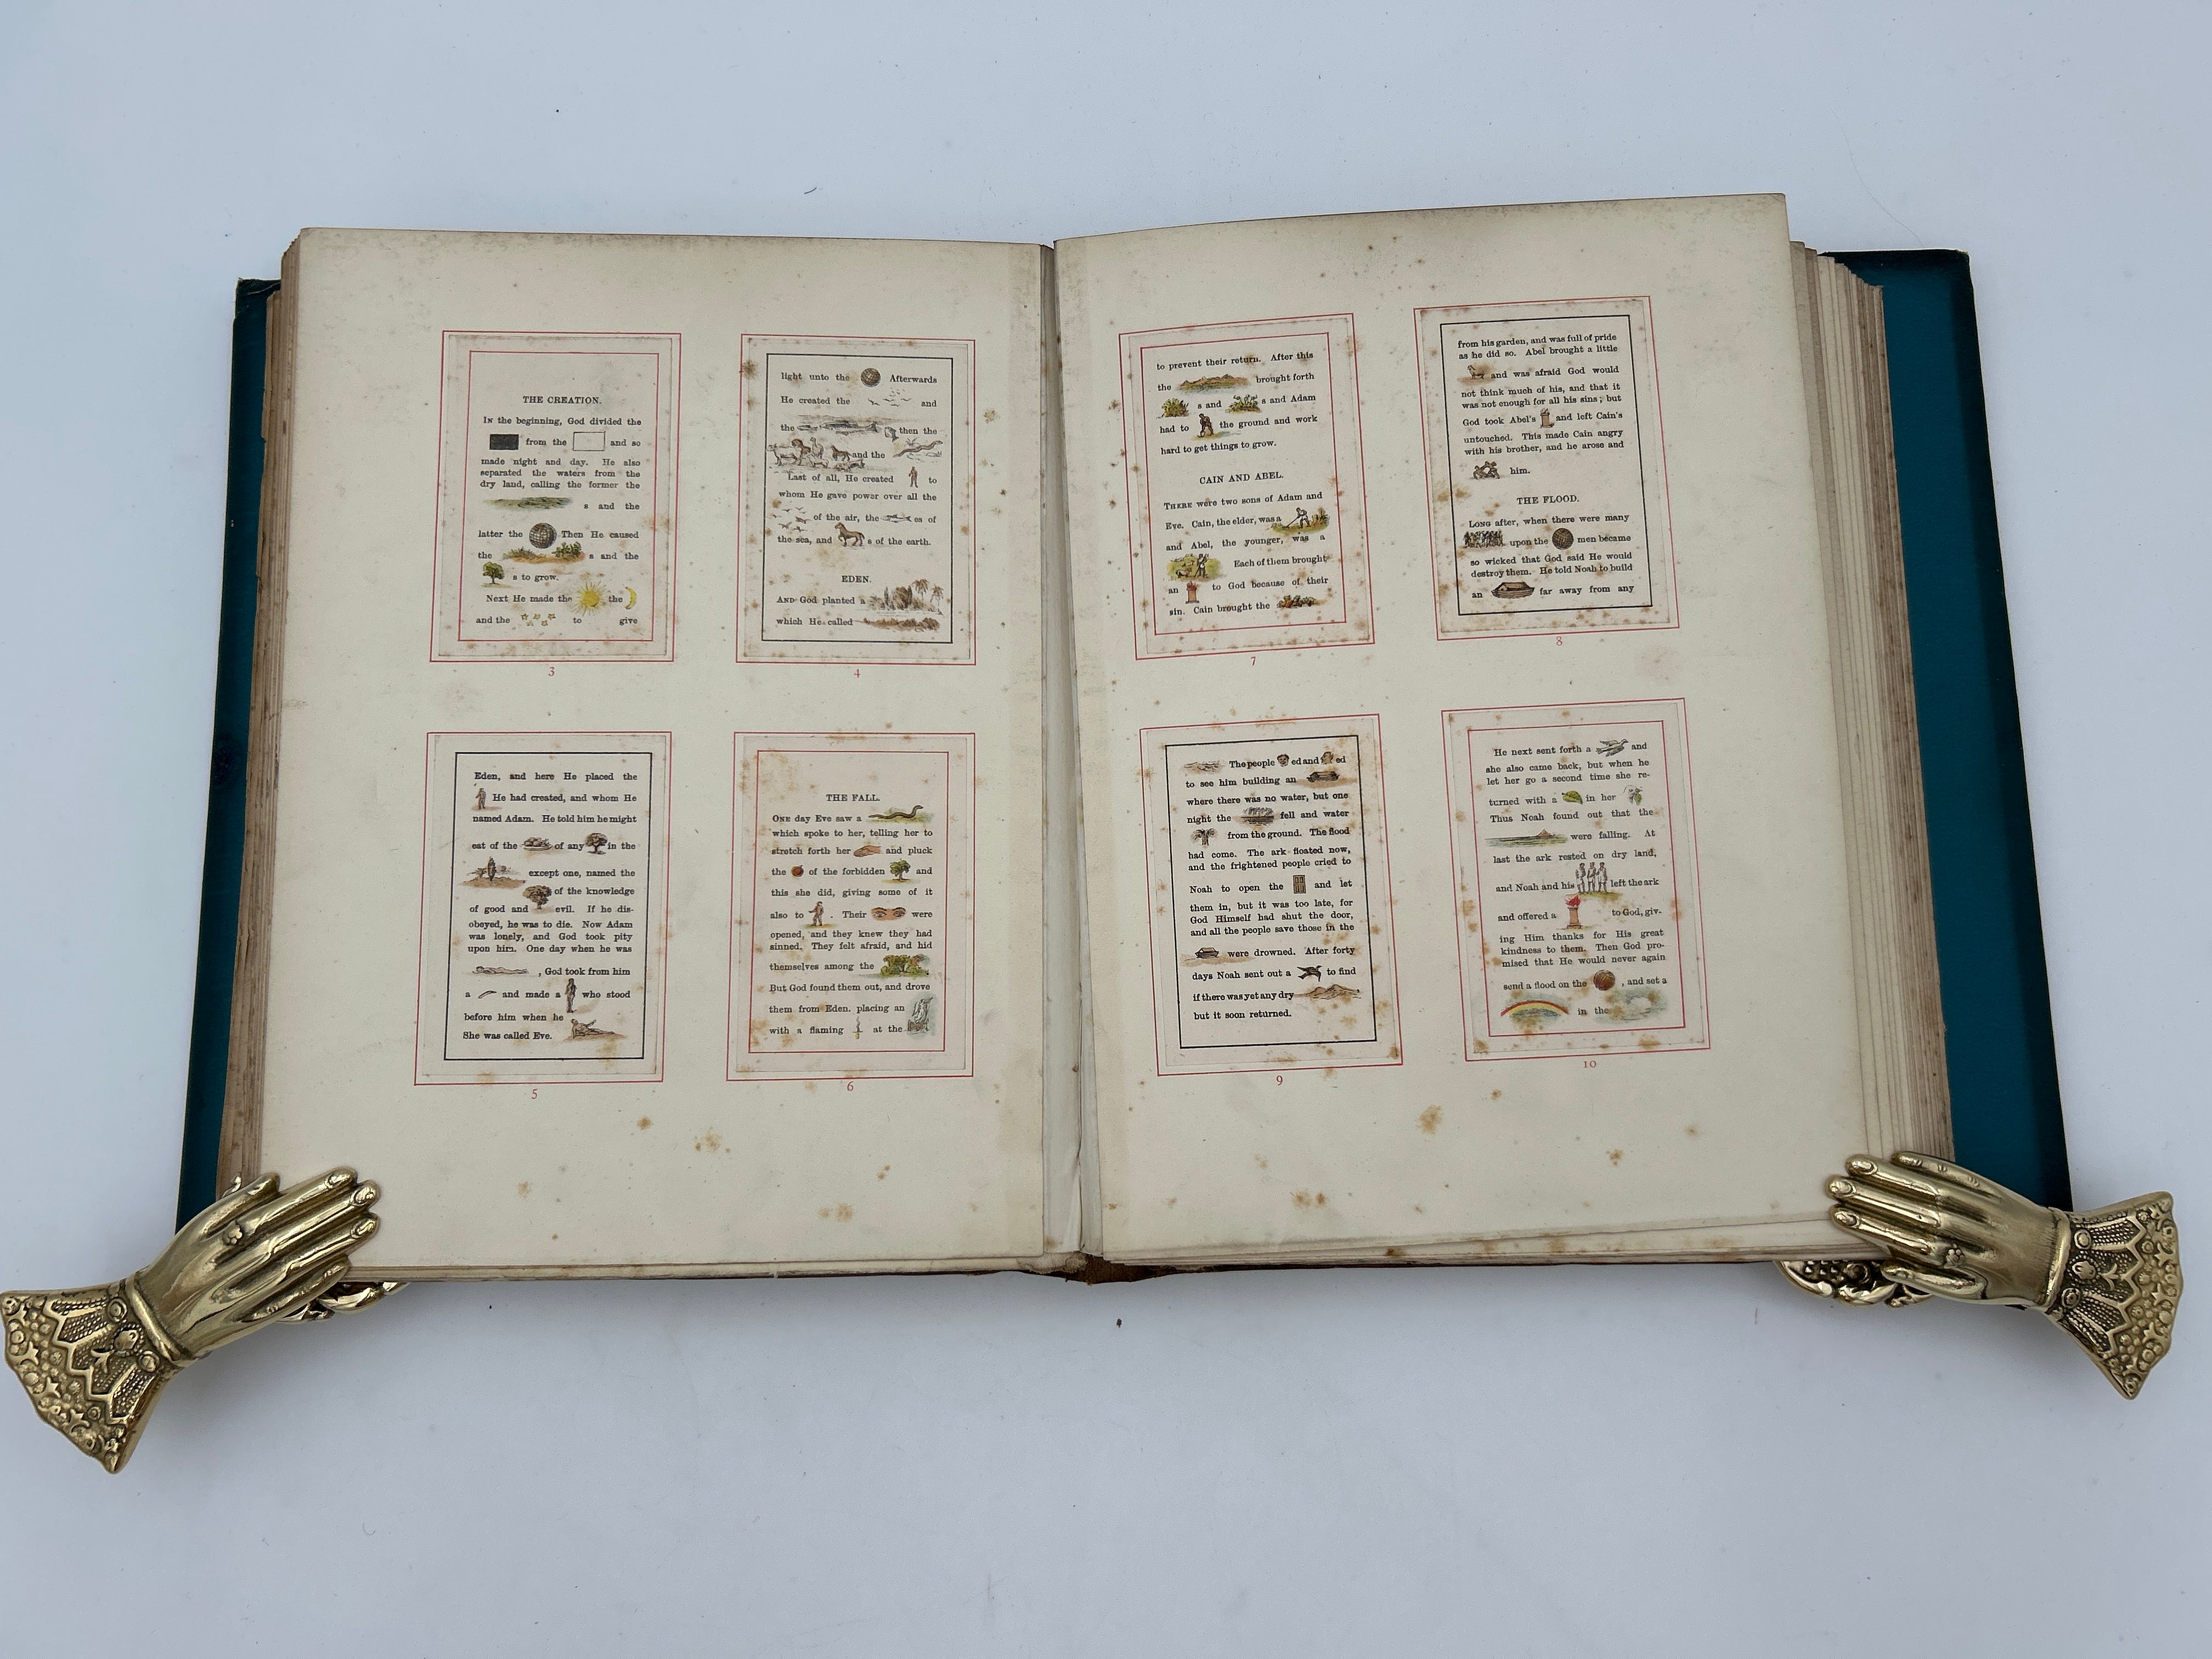 THE CREATION.
In the beginning, God divided the
from the and so
made night and day. He also
separated the waters from the
dry land, calling the former the
s and the
latter the Then He caused
the s and the
s to grow.
Next He made the the
and the to give
3
light unto the Afterwards
He created the and
the then the
and the
Last of all, He created to
whom He gave power over all the
of the air, the es of
the sea, and s of the earth.
EDEN.
AND God planted a
which He called
4
Eden, and here He placed the
He had created, and whom He
named Adam. He told him he might
eat of the of any in the
except one, named the
of the knowledge
of good and evil. If he dis-
obeyed, he was to die. Now Adam
was lonely, and God took pity
upon him. One day when he was
, God took from him
a and made a who stood
before him when he
She was called Eve.
5
THE FALL.
ONE day Eve saw a
which spoke to her, telling her to
stretch forth her and pluck
the of the forbidden and
this she did, giving some of it
also to . Their were
opened, and they knew they had
sinned. They felt afraid, and hid
themselves among the
But God found them out, and drove
them from Eden. placing an
with a flaming at the
6
to prevent their return. After this
the brought forth
s and s and Adam
had to the ground and work
hard to get things to grow.
CAIN AND ABEL.
THERE were two sons of Adam and
Eve. Cain, the elder, was a
and Abel, the younger, was a
Each of them brought
an to God because of their
sin. Cain brought the
7
from his garden, and was full of pride
as he did so. Abel brought a little
and was afraid God would
not think much of his, and that it
was not enough for all his sins; but
God took Abel's and left Cain's
untouched. This made Cain angry
with his brother, and he arose and
him.
THE FLOOD.
LONG after, when there were many
upon the men became
so wicked that God said He would
destroy them. He told Noah to build
an far away from any
8
The people ed and ed
to see him building an
where there was no water, but one
night the fell and water
from the ground. The flood
had come. The ark floated now,
and the frightened people cried to
Noah to open the and let
them in, but it was too late, for
God Himself had shut the door,
and all the people save those in the
were drowned. After forty
days Noah sent out a to find
if there was yet any dry
but it soon returned.
9
He next sent forth a and
she also came back, but when he
let her go a second time she re-
turned with a in her
Thus Noah found out that the
were falling. At
last the ark rested on dry land,
and Noah and his left the ark
and offered a to God, giv-
ing Him thanks for His great
kindness to them. Then God pro-
mised that He would never again
send a flood on the , and set a
in the
10